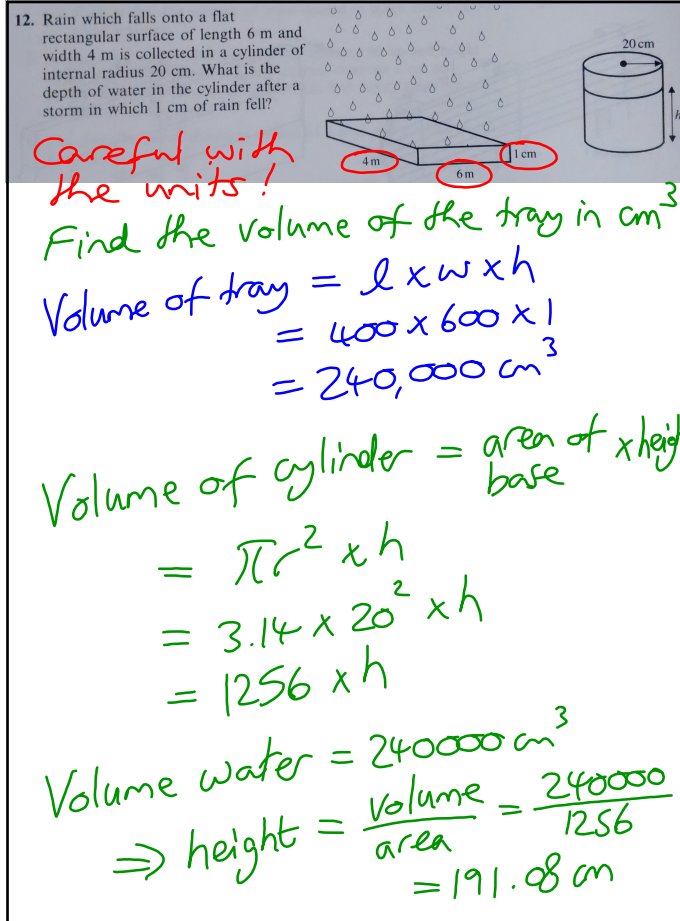 12. Rain which falls onto a flat
rectangular surface of length 6 m and
width 4 m is collected in a cylinder of
internal radius 20 cm. What is the
depth of water in the cylinder after a
storm in which 1 cm of rain fell?
20 cm
h
4 m
6 m
1 cm
Careful with
the units!
Find the volume of the tray in cm³
Volume of tray = l x w x h
= 400 x 600 x 1
= 240,000 cm³
Volume of cylinder = area of base x heig
= πr² x h
= 3.14 x 20² x h
= 1256 x h
Volume water = 240000 cm³
⇒ height = volume/area = 240000/1256
= 191.08 cm